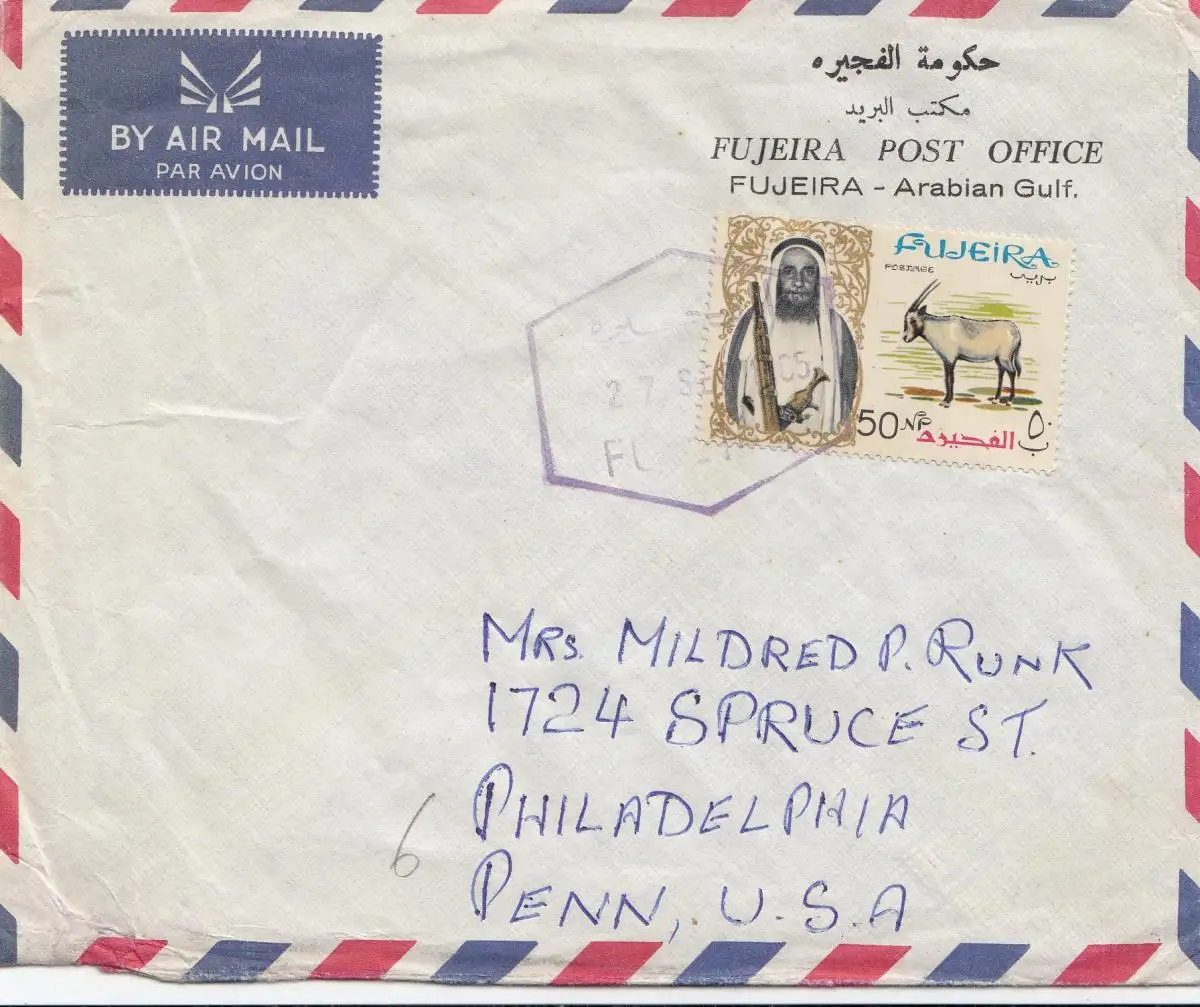 BY AIR MAIL
PAR AVION
حكومة الفجيره
مكتب البريد
FUJEIRA POST OFFICE
FUJEIRA - Arabian Gulf.
FUJEIRA
POSTAGE
بريد
50 NP
الفجيره
٥٠ ب
27
Mrs. MILDRED P. RUNK
1724 SPRUCE ST.
PHILADELPHIA
PENN, U.S.A
6